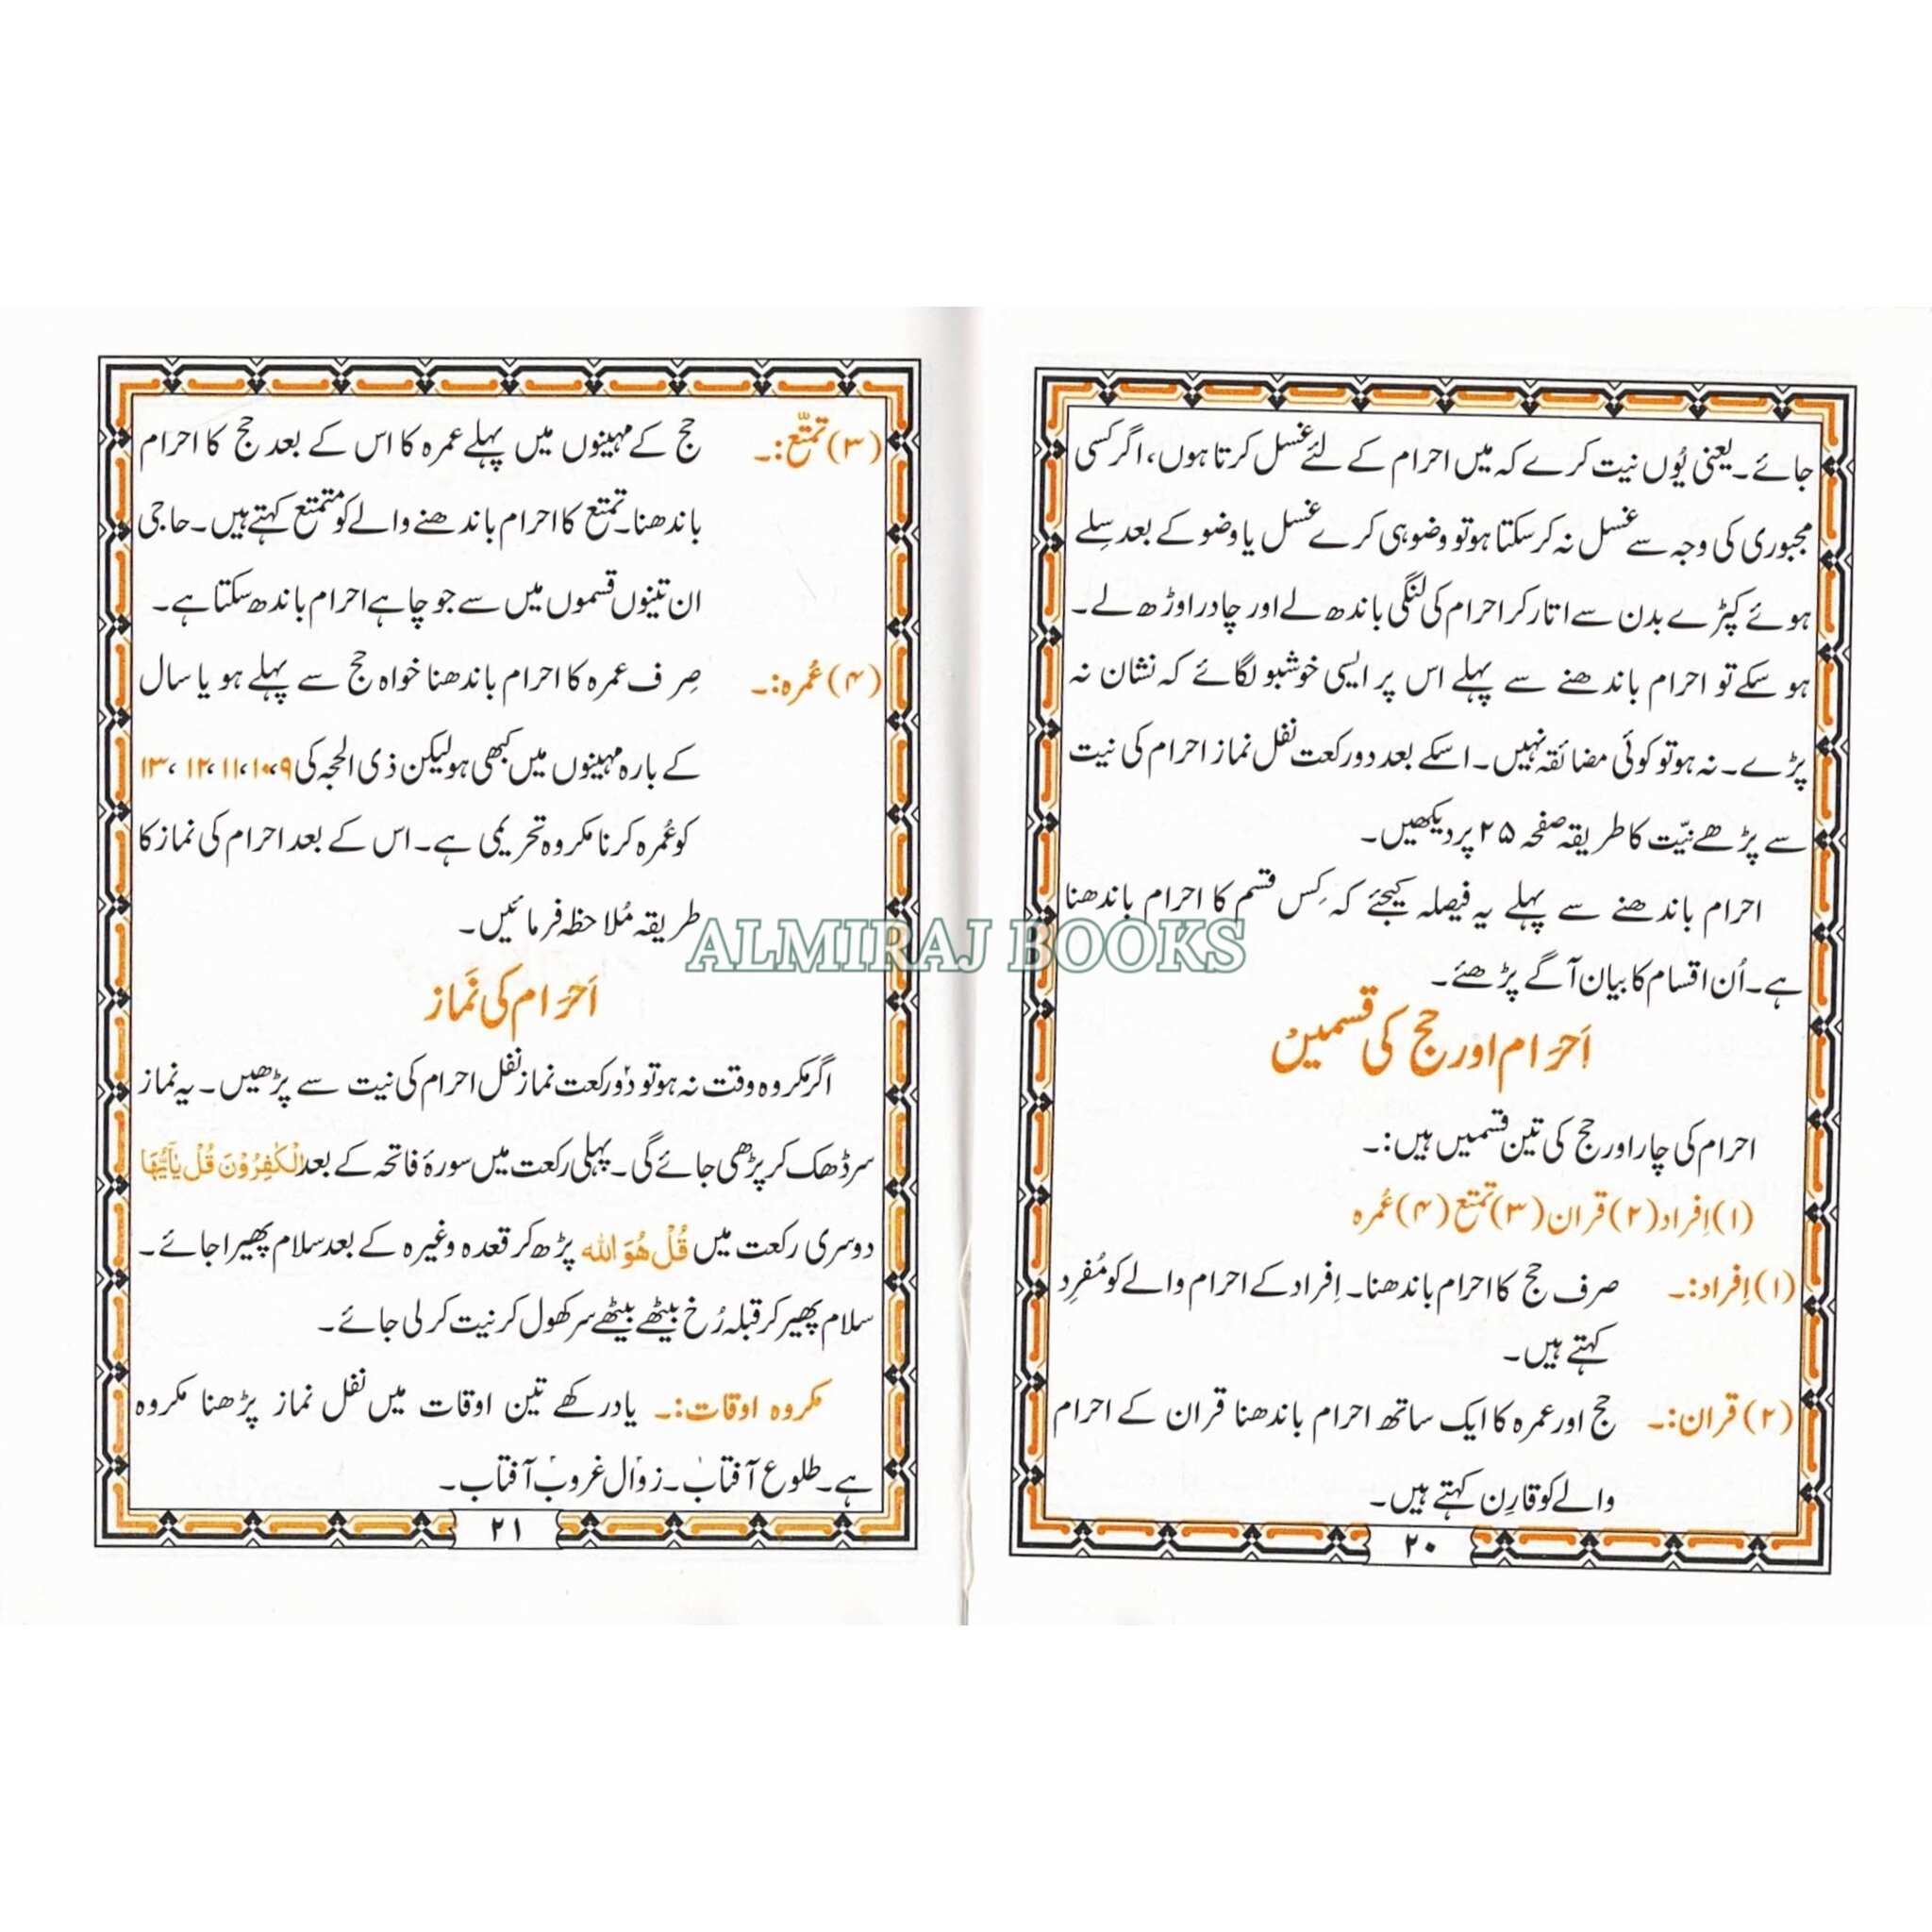 جائے۔ یعنی یُوں نیت کرے کہ میں احرام کے لئے غسل کرتا ہوں، اگر کسی
مجبوری کی وجہ سے غسل نہ کر سکتا ہو تو وضو ہی کرے غسل یا وضو کے بعد سِلے
ہوئے کپڑے بدن سے اتار کر احرام کی لنگی باندھ لے اور چادر اوڑھ لے۔
ہو سکے تو احرام باندھنے سے پہلے اس پر ایسی خوشبو لگائے کہ نشان نہ
پڑے۔ نہ ہو تو کوئی مضائقہ نہیں۔ اسکے بعد دو رکعت نفل نماز احرام کی نیت
سے پڑھے نیّت کا طریقہ صفحہ ۲۵ پر دیکھیں۔
احرام باندھنے سے پہلے یہ فیصلہ کیجئے کہ کِس قسم کا احرام باندھنا
ہے۔ اُن اقسام کا بیان آگے پڑھئے۔
اَحرَام اور حج کی قسمیں
احرام کی چار اور حج کی تین قسمیں ہیں:۔
(۱) اِفراد (۲) قران (۳) تمتع (۴) عُمرہ
(۱) اِفراد:۔ صرف حج کا احرام باندھنا۔ اِفراد کے احرام والے کو مُفرِد
کہتے ہیں۔
(۲) قران:۔ حج اور عمرہ کا ایک ساتھ احرام باندھنا قران کے احرام
والے کو قارِن کہتے ہیں۔
۲۰
(۳) تمتّع:۔ حج کے مہینوں میں پہلے عمرہ کا اس کے بعد حج کا احرام
باندھنا۔ تمتع کا احرام باندھنے والے کو متمتع کہتے ہیں۔ حاجی
ان تینوں قسموں میں سے جو چاہے احرام باندھ سکتا ہے۔
(۴) عُمرہ:۔ صِرف عمرہ کا احرام باندھنا خواہ حج سے پہلے ہو یا سال
کے بارہ مہینوں میں کبھی ہو لیکن ذی الحجہ کی ۹،۱۰،۱۱،۱۲،۱۳
کو عُمرہ کرنا مکروہ تحریمی ہے۔ اس کے بعد احرام کی نماز کا
طریقہ مُلاحظہ فرمائیں۔
اَحرَام کی نَماز
اگر مکروہ وقت نہ ہو تو دو رکعت نماز نفل احرام کی نیت سے پڑھیں۔ یہ نماز
سر ڈھک کر پڑھی جائے گی۔ پہلی رکعت میں سورۂ فاتحہ کے بعد الْكٰفِرُوْنَ قُلْ يٰۤاَيُّهَا
دوسری رکعت میں قُلْ هُوَ اللّٰه پڑھ کر قعدہ وغیرہ کے بعد سلام پھیرا جائے۔
سلام پھیر کر قبلہ رُخ بیٹھے بیٹھے سر کھول کر نیت کر لی جائے۔
مکروہ اوقات:۔ یاد رکھے تین اوقات میں نفل نماز پڑھنا مکروہ
ہے۔ طلوع آفتاب۔ زوال غروب آفتاب۔
۲۱
ALMIRAJ BOOKS